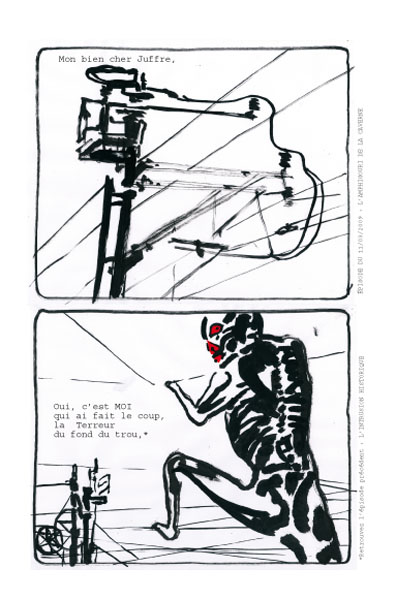 Mon bien cher Juffre,
Oui, c'est MOI
qui ai fait le coup,
la Terreur
du fond du trou,*
ÉPISODE DU 11/03/2009 - L'AMPHIGOURI DE LA CAVERNE
*Retrouvez l'épisode précédent : L'INTRUSION HISTORIQUE